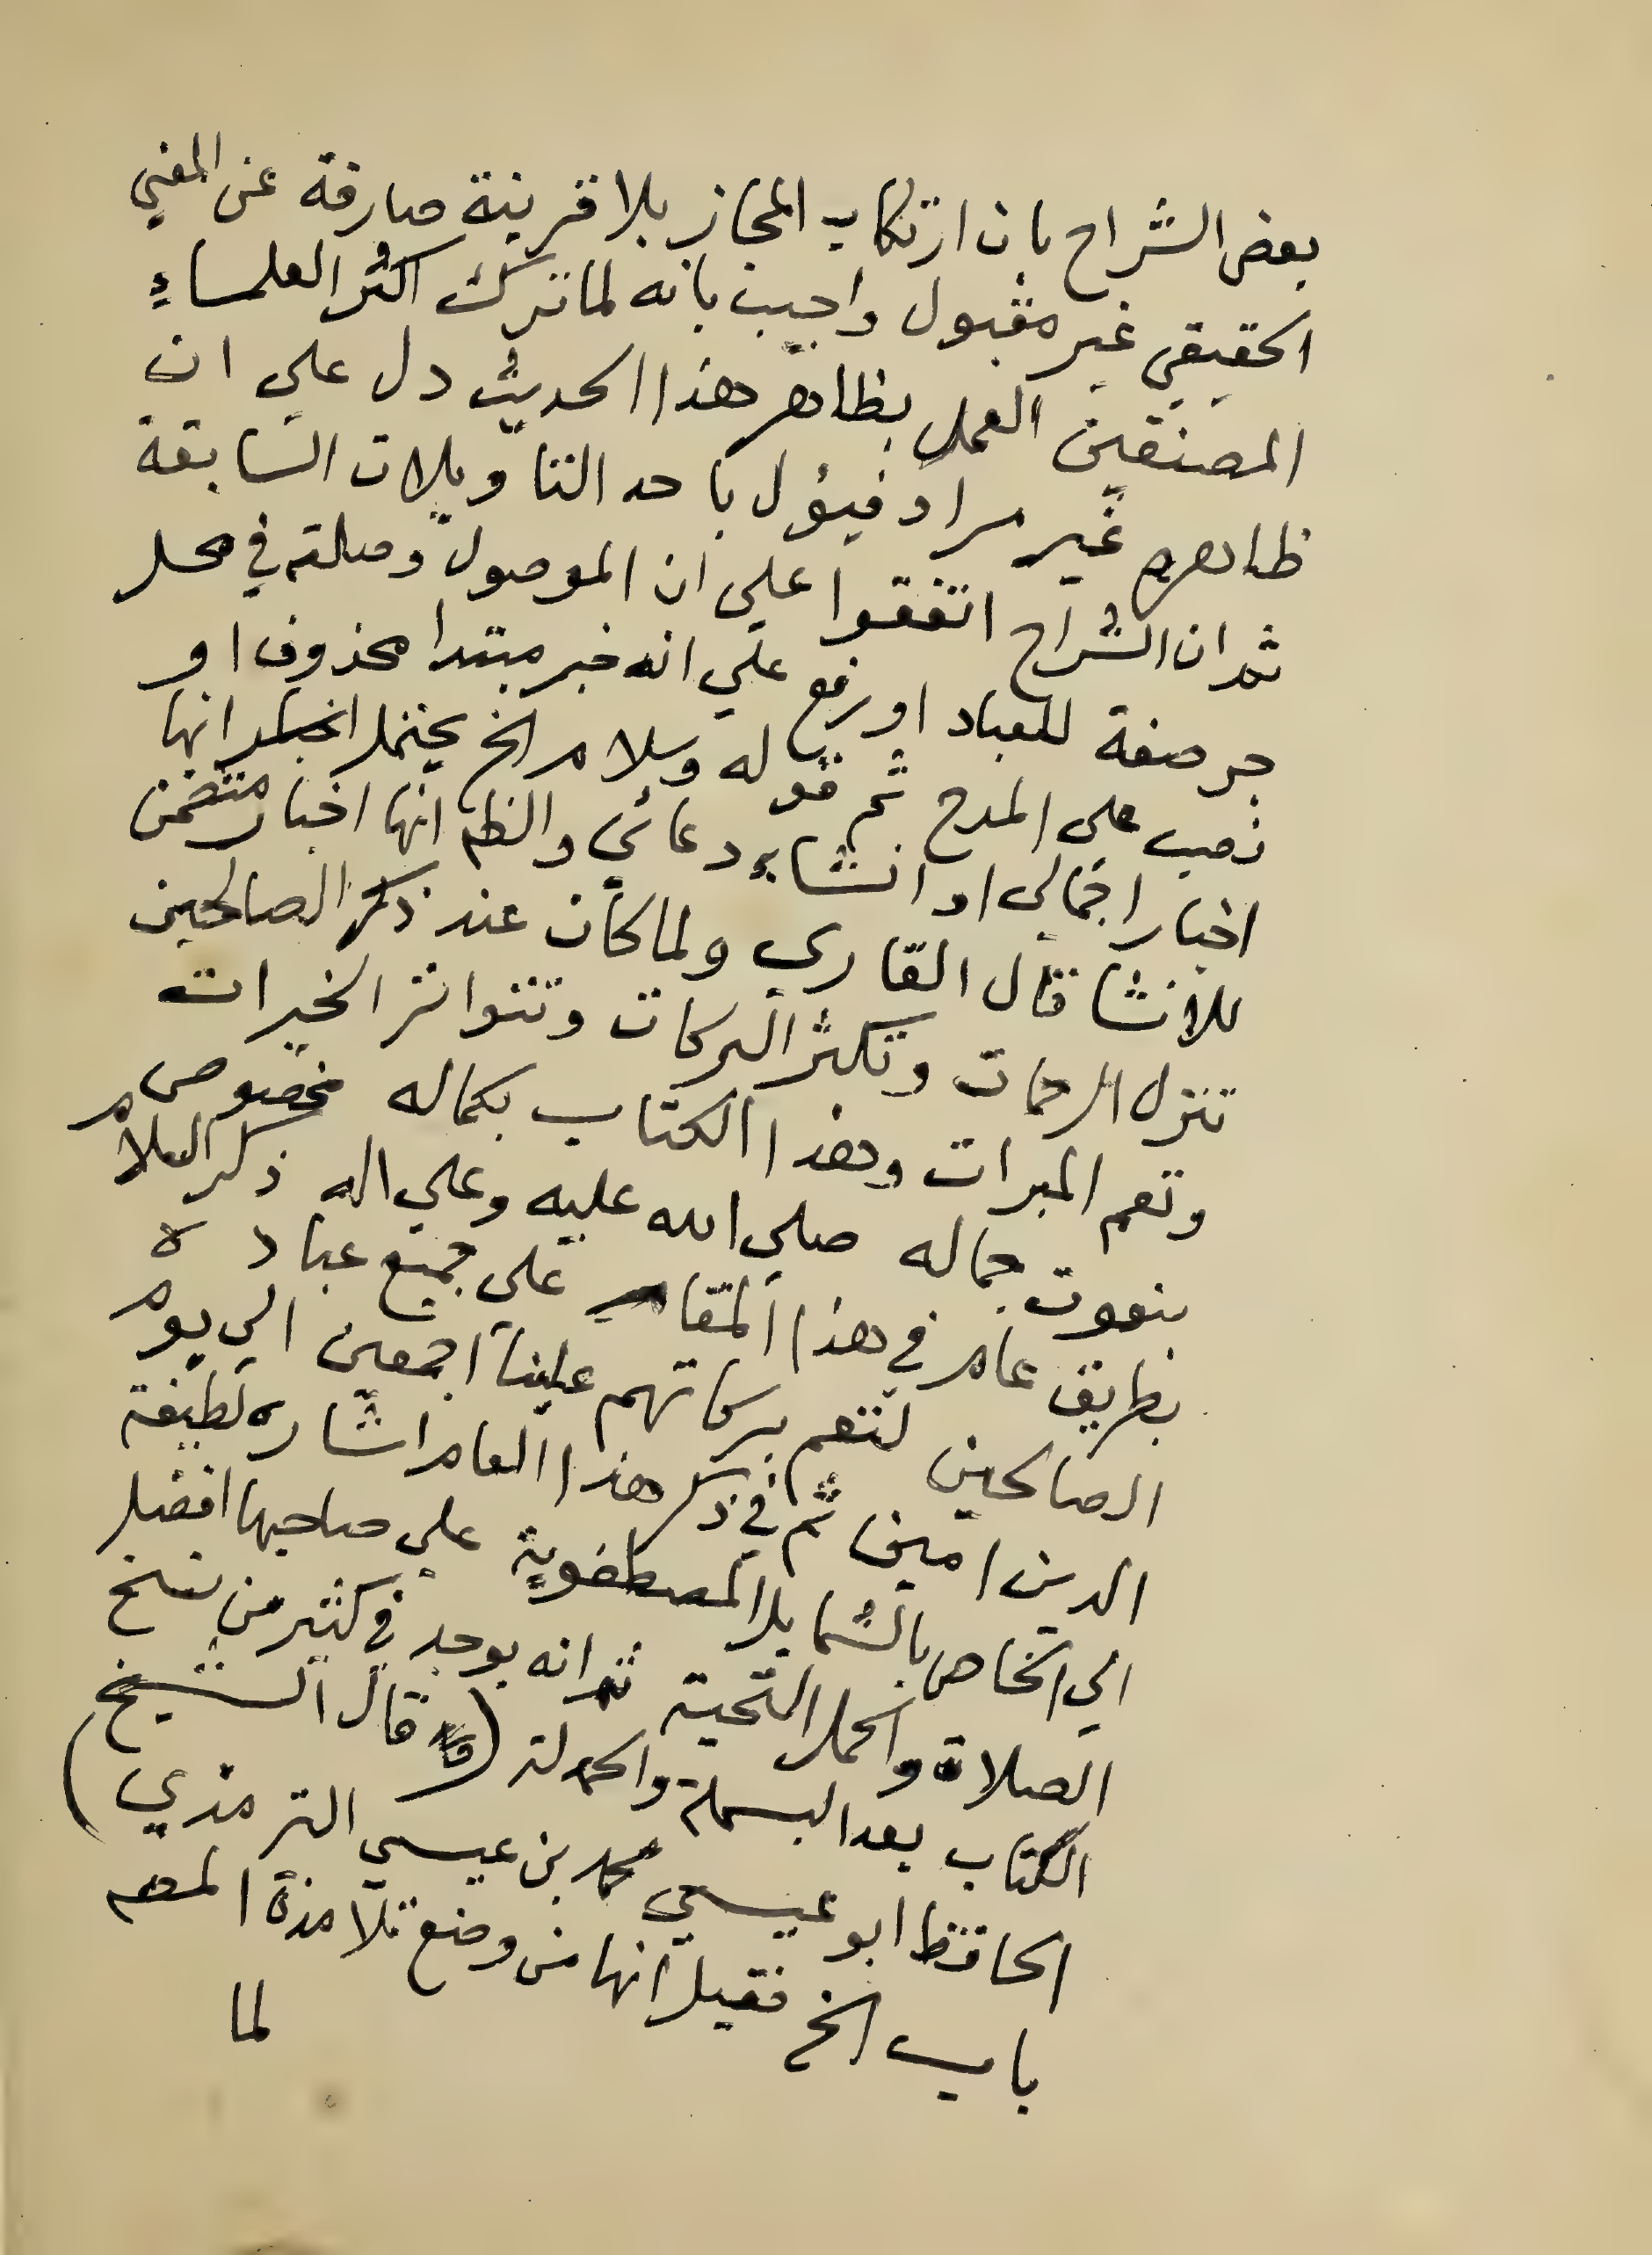 بعض الشراح بان ارتكاب المجاز بلا قرينة صارفة عن المعني
الحقيقي غير مقبول واجيب بانه لما ترك اكثر العلماء
المصنفين العمل بظاهر هذا الحديث دل علي ان
ظاهره غير مراد فيؤل باحد التاويلات السابقة
ثم ان الشراح اتفقوا علي ان الموصول وصلته في محل
جر صفة للعباد او رفع علي انه خبر مبتدا محذوف او
نصب على المدح ثم قوله وسلام الخ يحتمل انها
اخبار اجمالي او انشاء دعائي والظم انها اخبار متضمن
للانشا قال القاري ولما كان عند ذكر الصالحين
تنزل الرحمات وتكثر البركات وتتواتر الخيرات
وتعم المبرات وهذا الكتاب بكماله مخصوص
بنعوت جماله صلي الله عليه وعلي اله ذكر السلام
بطريق عام في هذا المقام علي جميع عباده
الصالحين لتعم بركاتهم علينا اجمعين الي يوم
الدين امين ثم في ذكر هذا العام اشاره لطيفة
الي الخاص بالشمايل المصطفوية علي صاحبها افضل
الصلاة واكمل التحية ثم انه يوجد في كثير من نسخ
الكتاب بعد البسملة والحمدلة (قال الشيخ
الحافظ ابو عيسي محمد بن عيسي الترمذي)
باب الخ فقيل انها من وضع تلامذة المصم
لما